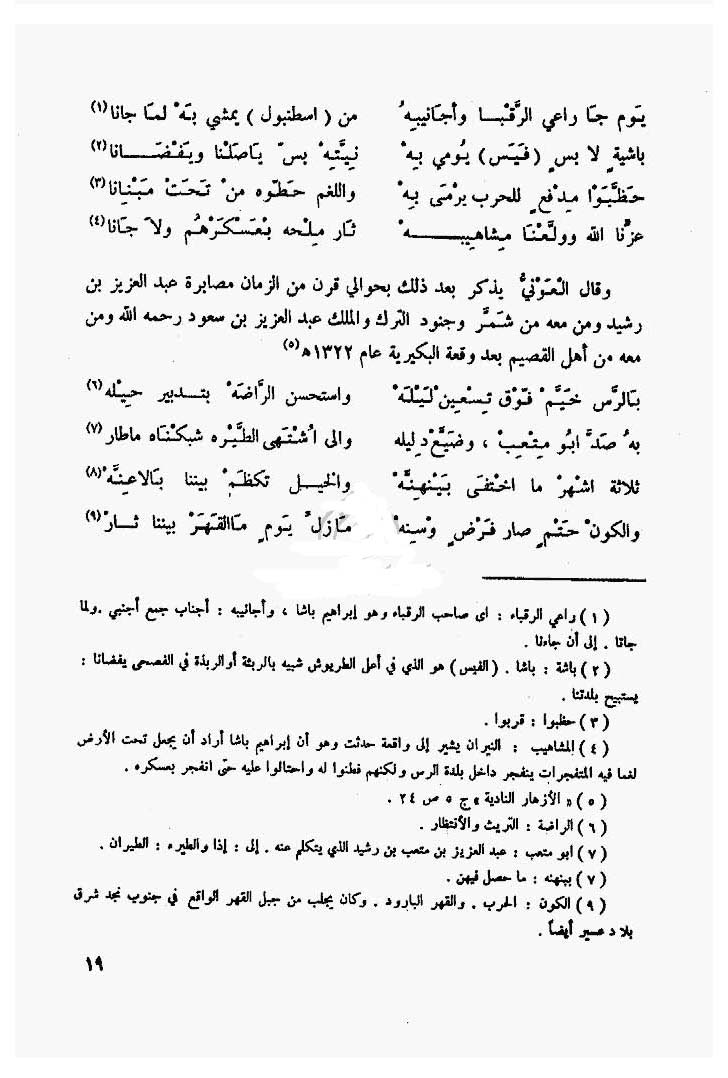 يَوم جَا راعي الرَّقْبَا وأجَانيبِهُ من ( اسطنبول ) يمشي بَهْ لمَا جانا (١)
باشيةٍ لا بس (فَيَس) يُومي بِهْ نِيِتَّهْ بس يَاصَلْنا ويَفْضَانا (٢)
حَظَّبَوْا مِدْفعٍ للحرب يرْمَى بِهْ واللغم حَطّوه منْ تَحَتْ مَبْنَانا (٣)
عزَّنا الله وولَّعْنَا مِشاهيبهْ ثَار مِلْحه بْعَسْكَرْهُم ولاَ جَانا (٤)
وقال الْعَوْنيُّ يذكر بعد ذلك بحوالي قرن من الزمان مصابرة عبد العزيز بن
رشيد ومن معه من شَمَّر وجنود الترك والملك عبد العزيز بن سعود رحمه الله ومن
معه من أهل القصيم بعد وقعة البكيرية عام ١٣٢٢ه (٥)
بَالرَّس خَيَّمْ فَوْق تِسْعينْ لَيْلَهْ واستحسن الرَّاضَهْ بتَدبير حِيْله (٦)
بهُ صَدَّ ابُو مِتْعِبْ ، وضَيَّعْ دِليله والى اشْتَهى الطَّيْرَه شبكْنَاه ماطار (٧)
ثلاثة اشهرْ ما اخْتفَى بَيْنهنَّهْ والخيل تكظَمْ بيننا بَالاعِنَّهْ (٨)
والكونْ حَتْمٍ صار فَرْضٍ وْسِنهْ مَازل يَومٍ مَاالقَهَرْ بيننا ثَارْ (٩)
( ١ ) راعي الرقباء : اى صاحب الرقباء وهو إبراهيم باشا ، وأجانيبه : أجناب جمع أجنبي . ولما
جانا . إلى أن جاءنا .
( ٢ ) باشة : باشا . (الفيس) هو الذي في أعل الطربوش شبيه بالربثة أو الربذة في الفصحى يفضانا :
يستبيح بلدتنا .
( ٣ ) حظبوا : قربوا .
( ٤ ) المشاهيب : النيران يشير إلى واقعة حدثت وهو أن إبراهيم باشا أراد أن يجعل تحت الأرض
لغما فيه المتفجرات ينفجر داخل بلدة الرس ولكنهم فطنوا له واحتالوا عليه حتى انفجر بعسكره .
( ٥ ) « الأزهار النادية » ج ٥ ص ٢٤ .
( ٦ ) الراضة : التريث والأنتظار .
( ٧ ) ابو متعب : عبد العزيز بن متعب بن رشيد الذي يتكلم عنه . إلى : إذا والطيره : الطيران .
( ٧ ) بينهنه : ما حصل فيهن .
( ٩ ) الكون : الحرب . والقهر البارود . وكان يجلب من جبل القهر الواقع في جنوب نجد شرق
بلاد عسير أيضاً .
١٩